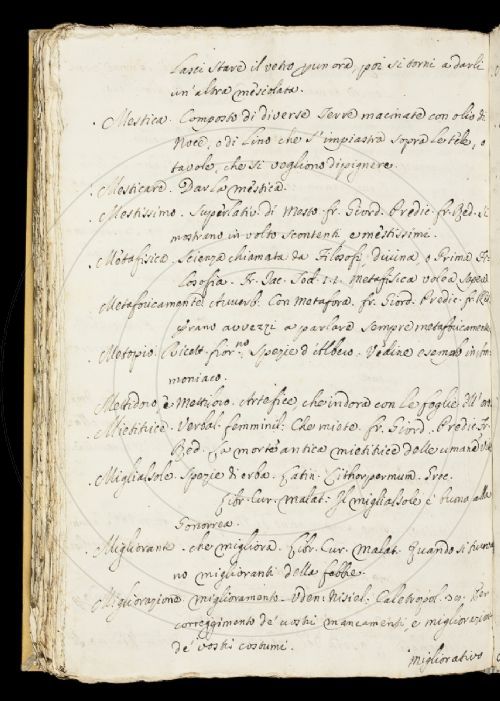 Lasci stare il vetro p un ora, poi si torni a darli
un'altra mesiolata.
Mestica. Composto di diverse Terre macinate con olio di
Noce, o di Lino che s'impiastra sopra le tele, o
tavole, che si vogliono dipignere.
Mesticare. Dar la mestica.
Mestissimo. Superlativ. di Mesto. fr. Giord. Predic. fr. Red. si
mostrano in volto scontenti e mestissimi.
Metafisica. Scienza chiamata da Filosofi, divina, o Prima Fi-
losofia. Fr. Jac. Tod. 1.1. metafisica volea sapea
Metaforicamente Avverb. Con metafora. fr. Giord. Predic. fr. R
erano avvezzi a parlare sempre metaforicamente
Metopio. spezie d'Albero. Vedine esemplo in Am-
moniaco.
Mettidoro, e Mettioro. Artefice che indora con le foglie d'oro
Mietitrice. Verbal. femminil: Che miete. fr. Giord. Predic. fr.
Red. La morte antica mietitrice delle umane
Migliassole. Spezie di erba. Latin. Lithospermum. Grec.
Libr. Cur. Malat: Il migliassole è buono alla
Gonorrea.
Migliorante. che migliora. Libr. Cur. Malat. Quando si
no miglioranti della febbe.
Migliorazione miglioramento. Uden: Nisiel: Per
correggimento de' vostri mancamenti, e migliorazione
de' vostri costumi.
migliorativo